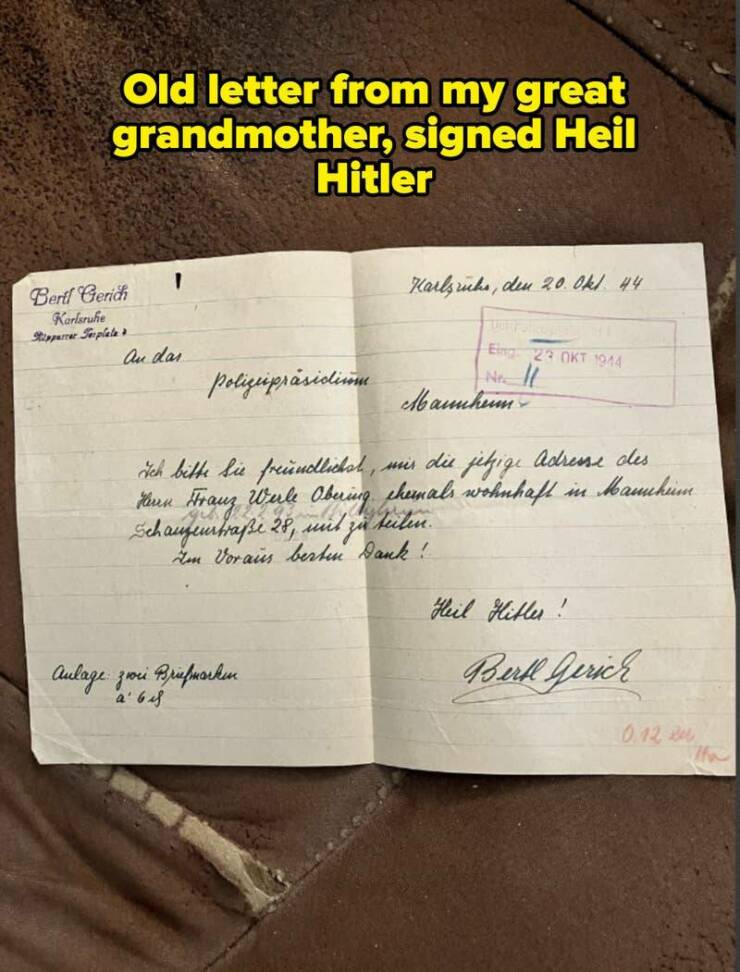 Old letter from my great
grandmother, signed Heil
Hitler
Bertl Gerich
Karlsruhe
Karlsruhe, den 20. Okt. 44
Eing. 23 OKT 1944
Nr. 11
An das
Polizeipräsidium
Mannheim
Ich bitte Sie freundlichst, mir die jetzige Adresse des
Herrn Franz Werle Obering. ehemals wohnhaft in Mannheim
Schanzenstraße 28, mit zu teilen.
Im Voraus besten Dank!
Heil Hitler!
Bertl Gerich
Anlage: zwei Briefmarken
0.12